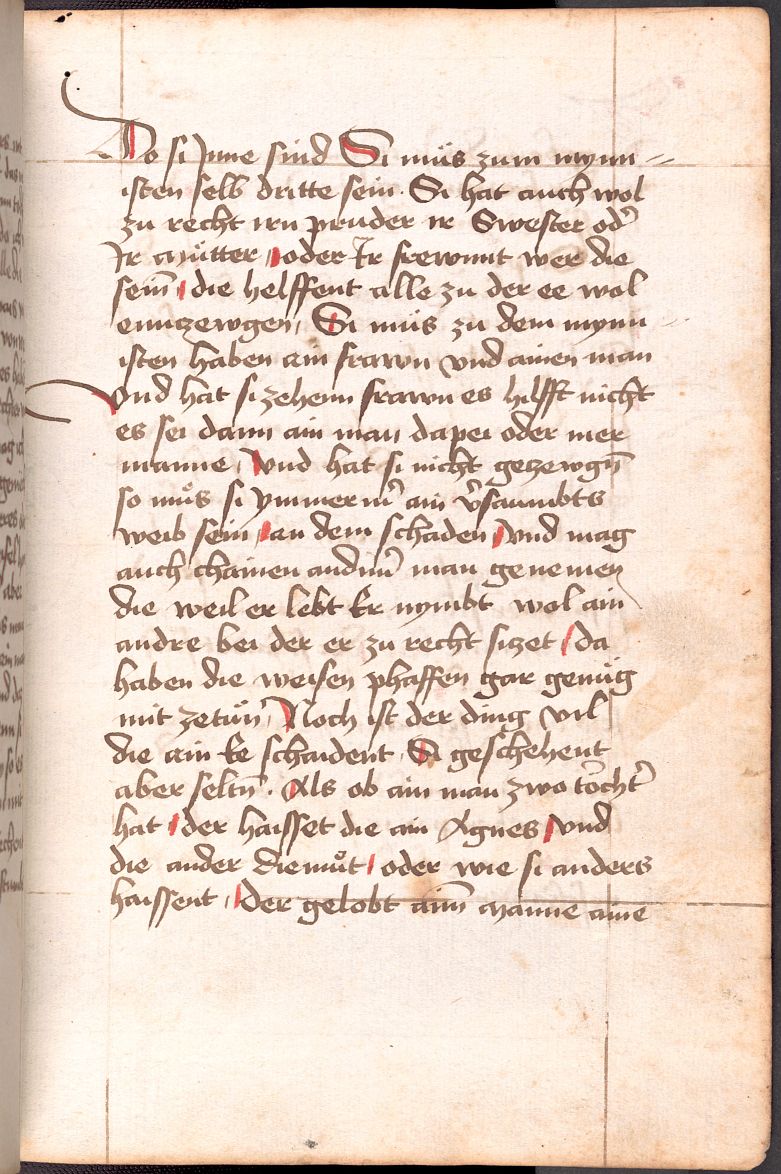 Do si Inne sind Si müs zum mynn=
isten selb dritte sein. Si hat auch wol
zu recht irn pruder ir Swester od'
Ir Muͤtter / oder Ir frewnnt wer die
sein̄ / die helffent alle zu der ee wol
erinczewgen / Si müs zu dem mynn
isten haben ain frawn vnd ainen man
vnd hat si zehenn frawn es hilfft nicht
es sei dann ain man dapei oder mer
manne / vnd hat si nicht gezewgn̄
so muͦs si ymmer m' ain v'saumbts
weib sein / an dem schaden / vnd mag
auch chainen andnn' man genemen
die weil er lebt Er nymbt wol ain
andre bei der er zu recht siczet / da
haben die weisen phaffen gar genüg
mit zetün / Noch ist der ding vil
die ain Ee schaident / Si geschehent
aber seltn̄ . Als ob ain man zwo tocht'
hat / der haisset die ain Agnes / vnd
die ander Diemuͦt / oder wie si anders
haissent / Der gelobt ainn̄ Manne aine